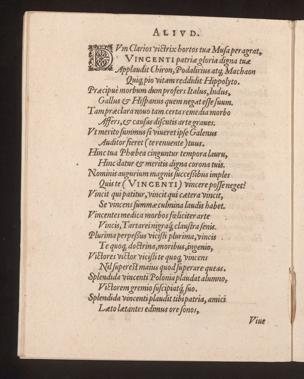 ALIVD.
DVm Clarios victrix hortos tuæ Musa peragrat,
VINCENTI patriæ gloria digna tuæ
Applaudit Chiron, Podalirius atq; Machaon
Quiq; pio vitam reddidit Hippolyto.
Præcipui morbum dum profers Italus, Indus,
Gallus & Hispanus quem negat esse suum.
Tam præclara nouo tam certa remedia morbo
Affers, & causas discutis arte graues.
Vt merito summus si viueret ipse Galenus
Auditor fieret (te renuente) tuus.
Hinc tua Phœbea cinguntur tempora lauru,
Hinc datur & meritis digna corona tuis.
Nominis augurium magnis successibus imples
Quis te (VINCENTI) vincere posse neget?
Vincit qui patitur, vincit qui cætera vincit,
Se vincens summæ culmina laudis habet.
Vincentes medica morbos fœliciter arte
Vincis, Tartarei nigraq; claustra senis.
Plurima perpessus vicisti plurima, vincis
Te quoq; doctrina, moribus, ingenio,
Victores victor vicisti te quoq; vincens
Nil superest maius quod superare queas.
Splendida vincenti Polonia plaudat alumno,
Victorem gremio suscipiatq; suo.
Splendida vincenti plaudit tibi patria, amici
Læto lætantes edimus ore sonos,
Viue